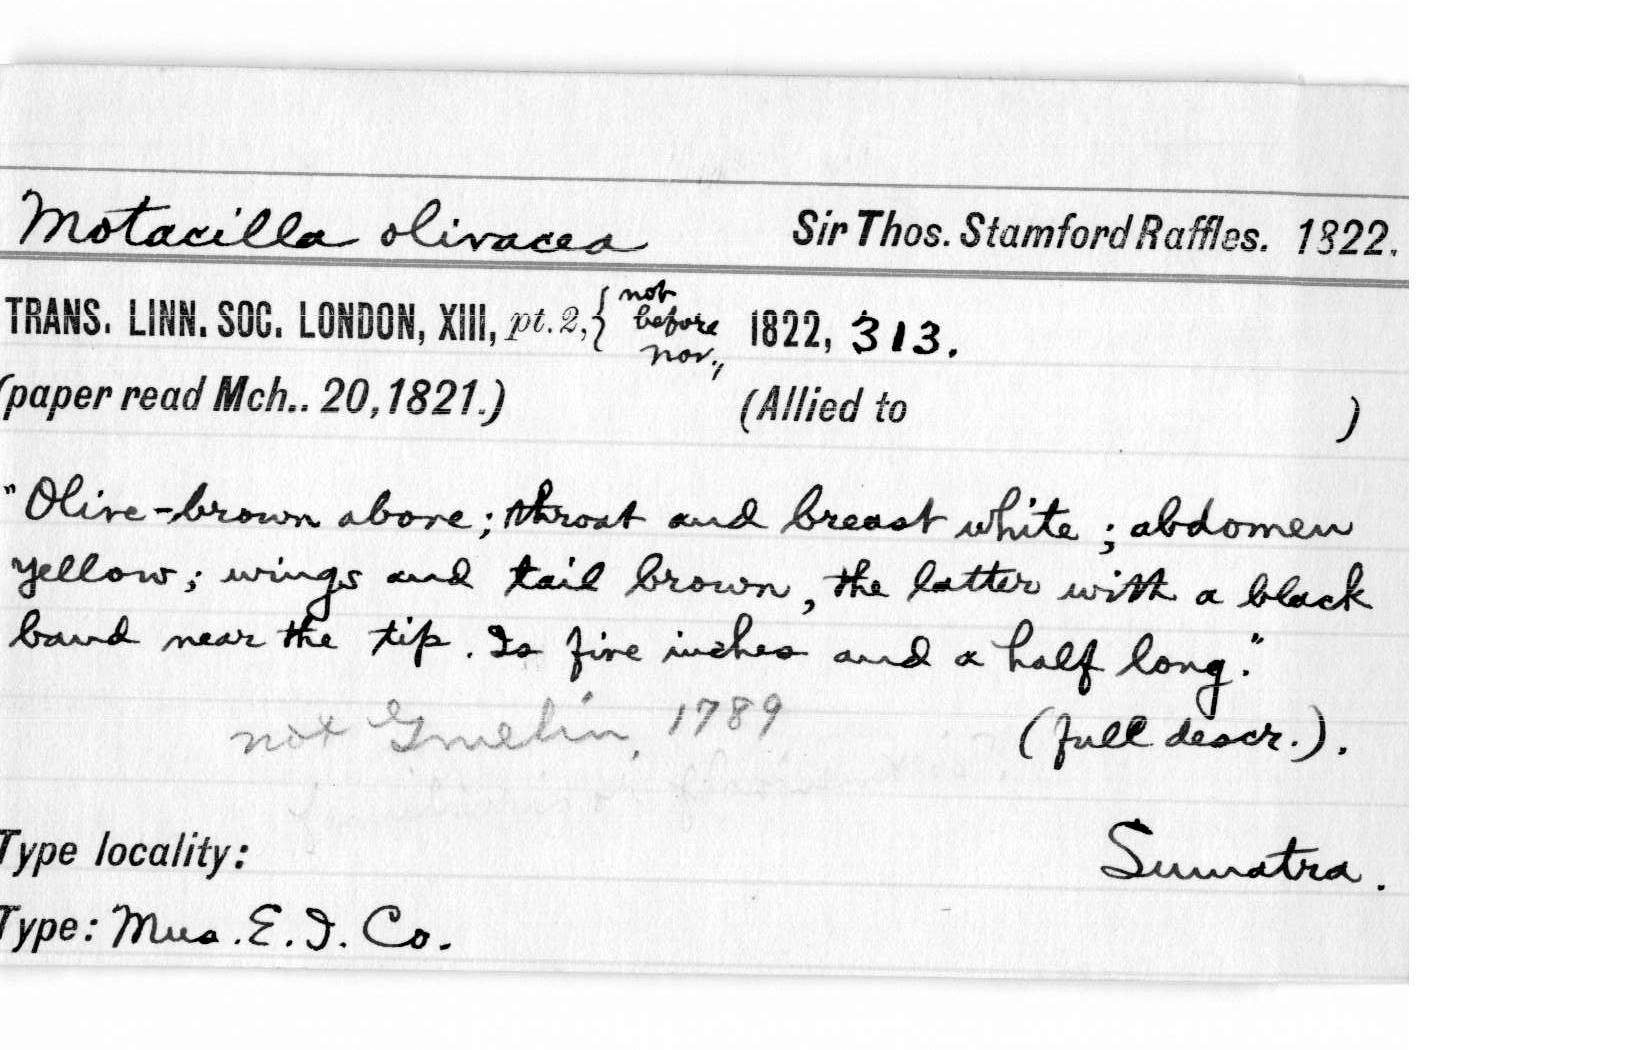 Motacilla olivacea Sir Thos. Stamford Raffles. 1822.
TRANS. LINN. SOC. LONDON, XIII, pt. 2, { not before nov., 1822, 313.
(paper read Mch.. 20, 1821.) (Allied to )
"Olive-brown above; throat and breast white; abdomen
yellow; wings and tail brown, the latter with a black
band near the tip. Is five inches and a half long."
not Gmelin, 1789 (full descr.).
Type locality: Sumatra.
Type: Mus. E. I. Co.